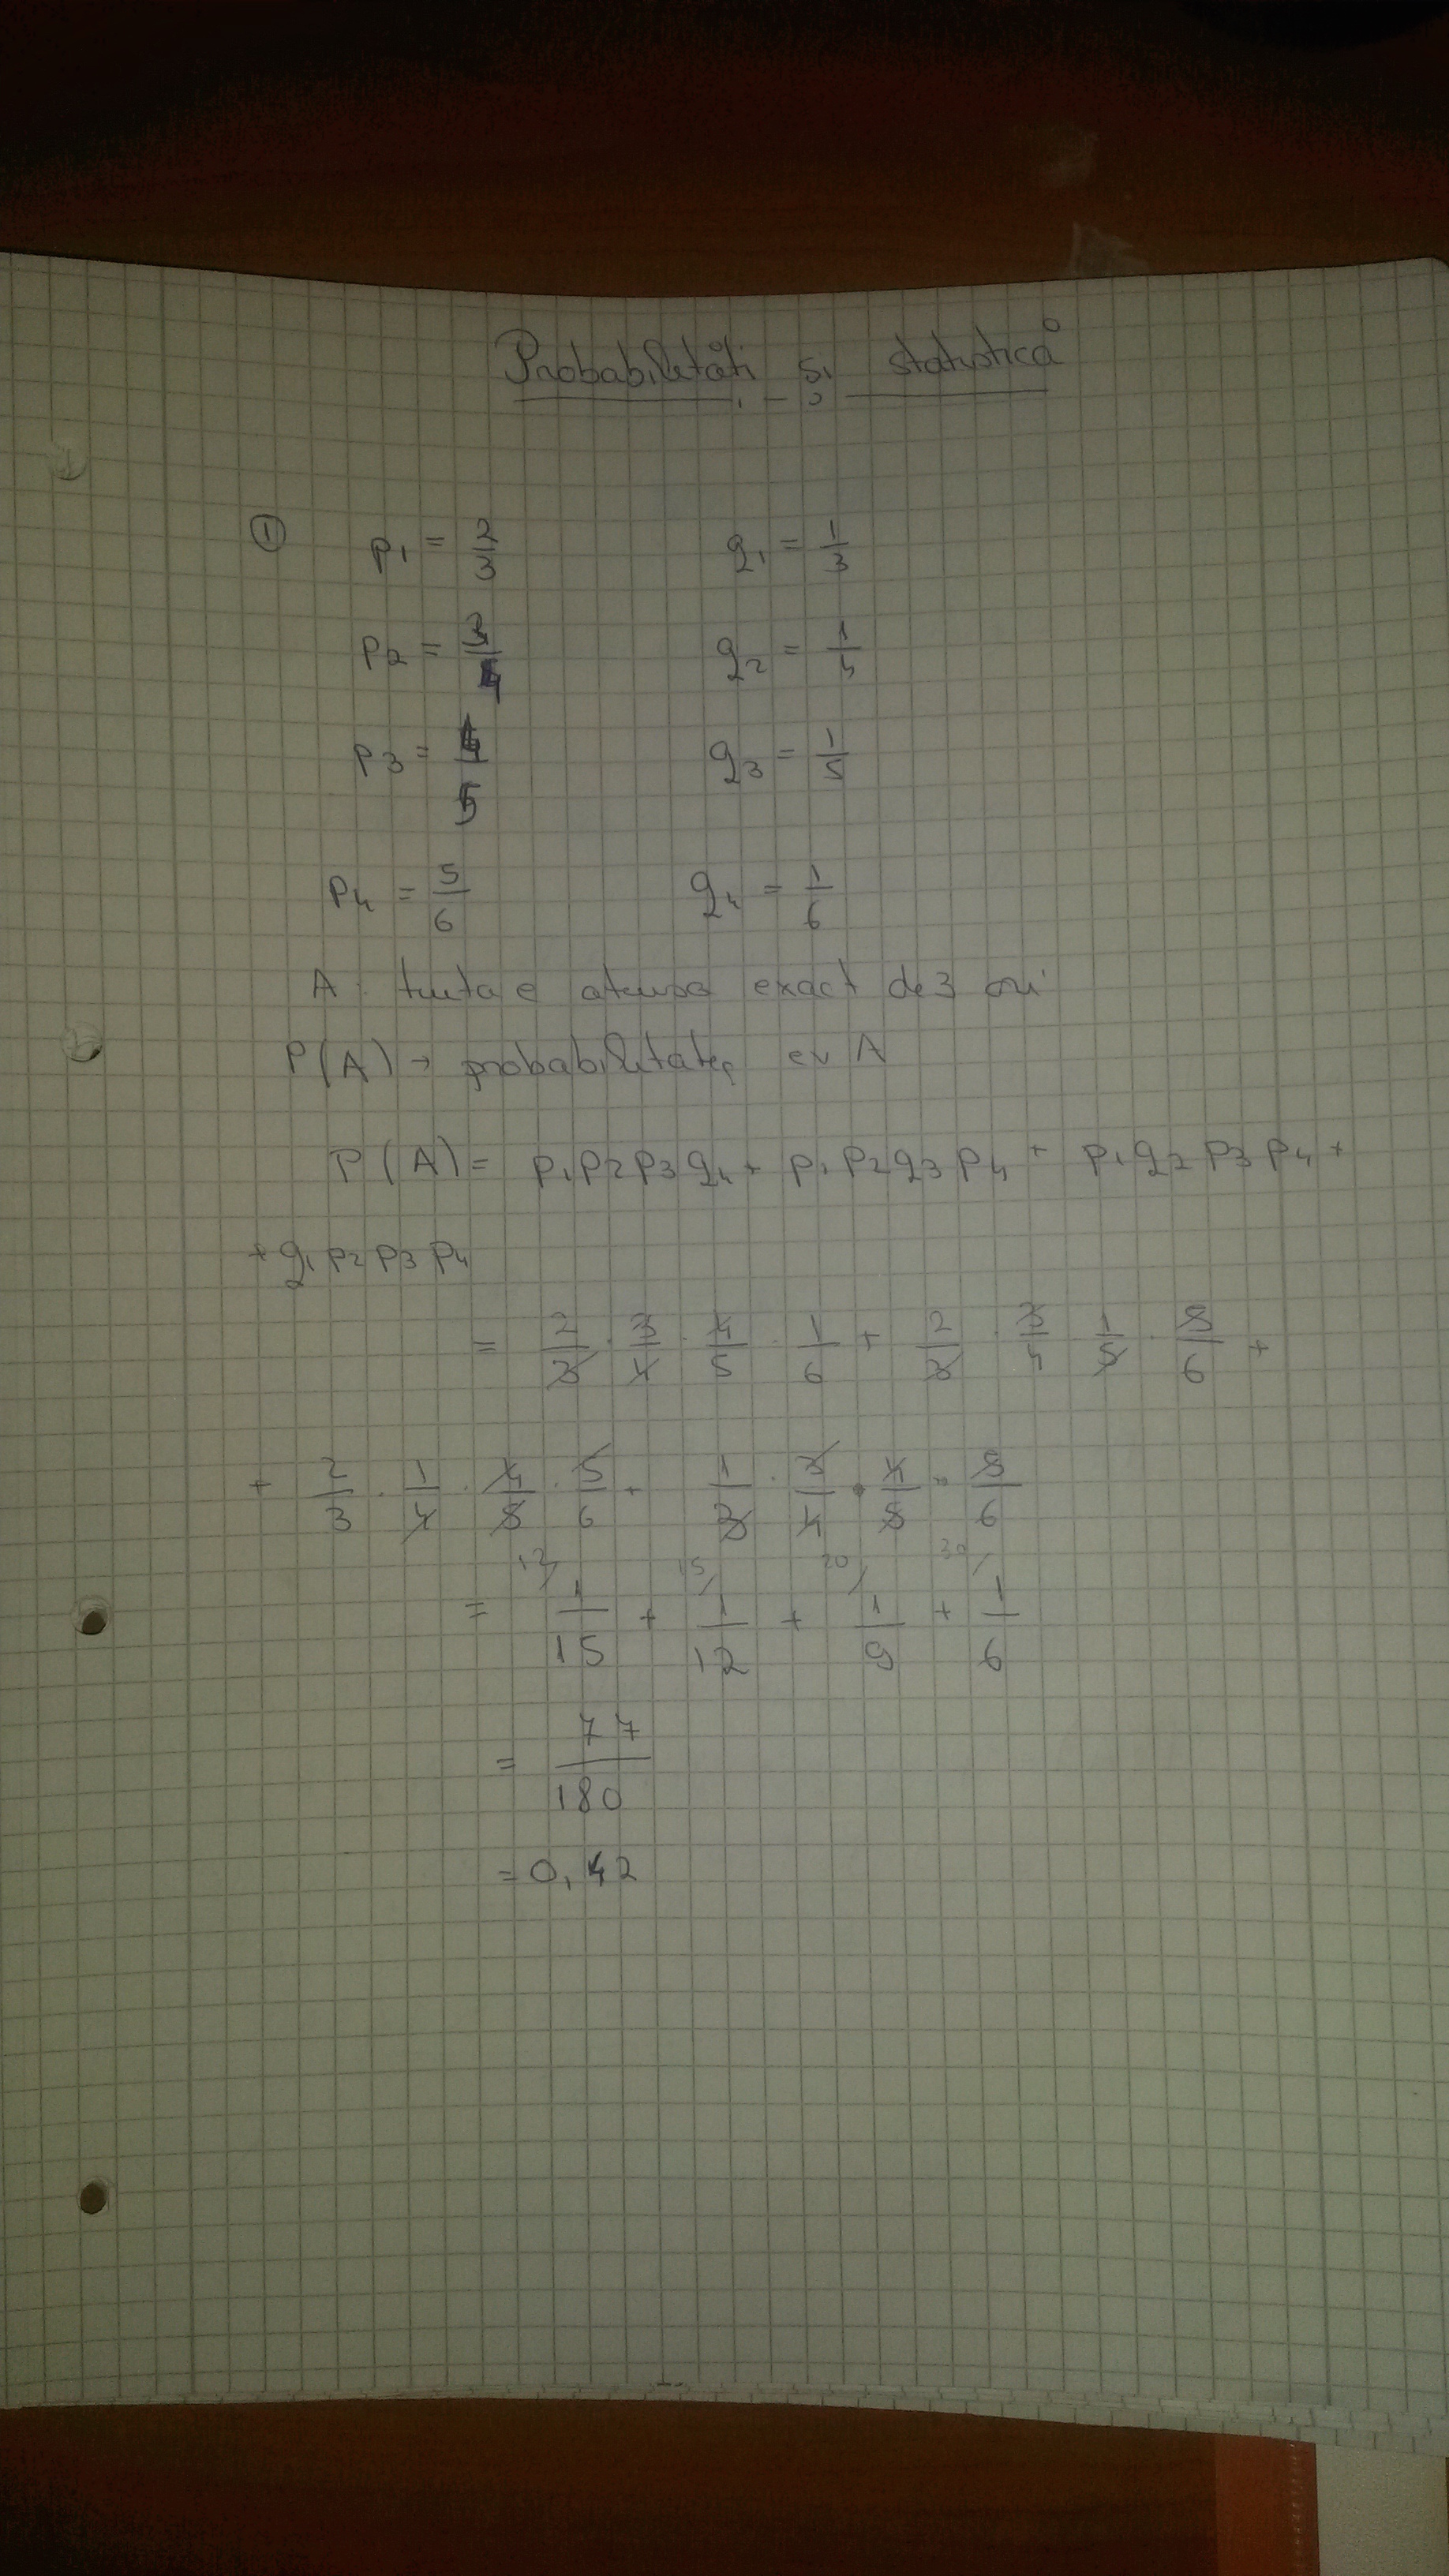 Probabilități și statistică
① p1 = 2/3 q1 = 1/3
p2 = 3/4 q2 = 1/4
p3 = 4/5 q3 = 1/5
p4 = 5/6 q4 = 1/6
A: ținta e atinsă exact de 3 ori
P(A) → probabilitatea ev A
P(A) = p1p2p3q4 + p1p2q3p4 + p1q2p3p4 +
+ q1p2p3p4
= 2/3 · 3/4 · 4/5 · 1/6 + 2/3 · 3/4 1/5 · 5/6 +
+ 2/3 · 1/4 · 4/5 · 5/6 + 1/3 · 3/4 · 4/5 · 5/6
= 12/ 1/15 + 15/ 1/12 + 20/ 1/9 + 30/ 1/6
= 77/180
= 0,42